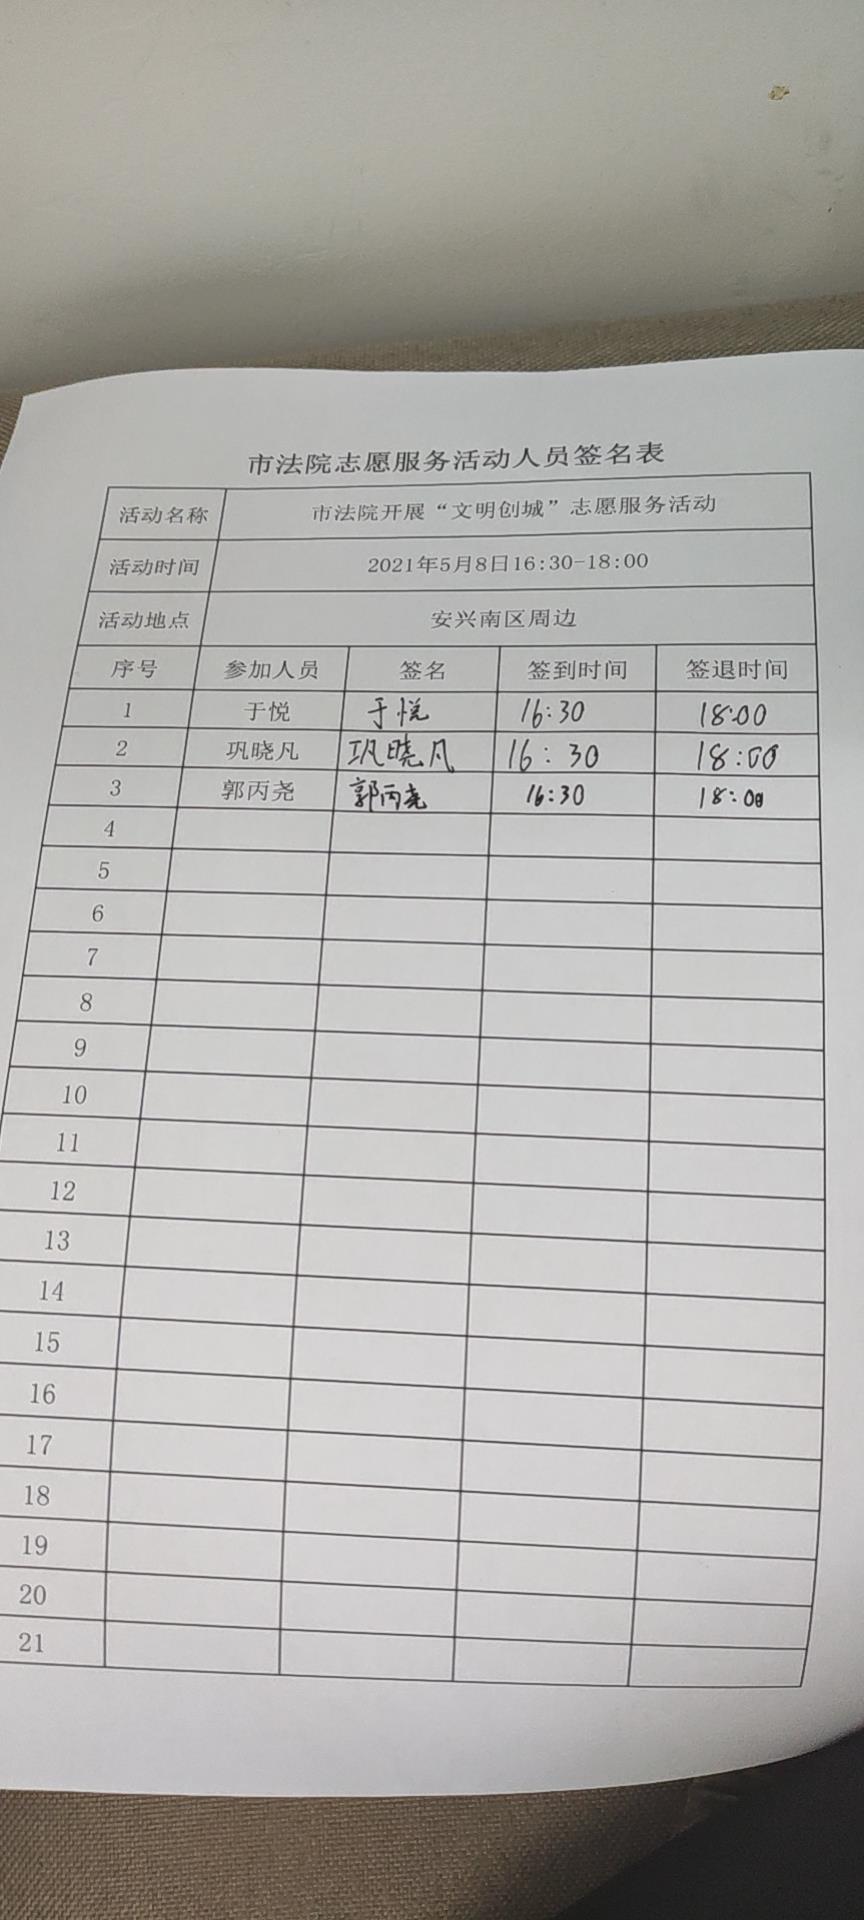 市法院志愿服务活动人员签名表
活动名称 市法院开展“文明创城”志愿服务活动
活动时间 2021年5月8日16:30-18:00
活动地点 安兴南区周边
序号 参加人员 签名 签到时间 签退时间
1 于悦 于悦 16:30 18:00
2 巩晓凡 巩晓凡 16:30 18:00
3 郭丙尧 郭丙尧 16:30 18:00
4
5
6
7
8
9
10
11
12
13
14
15
16
17
18
19
20
21